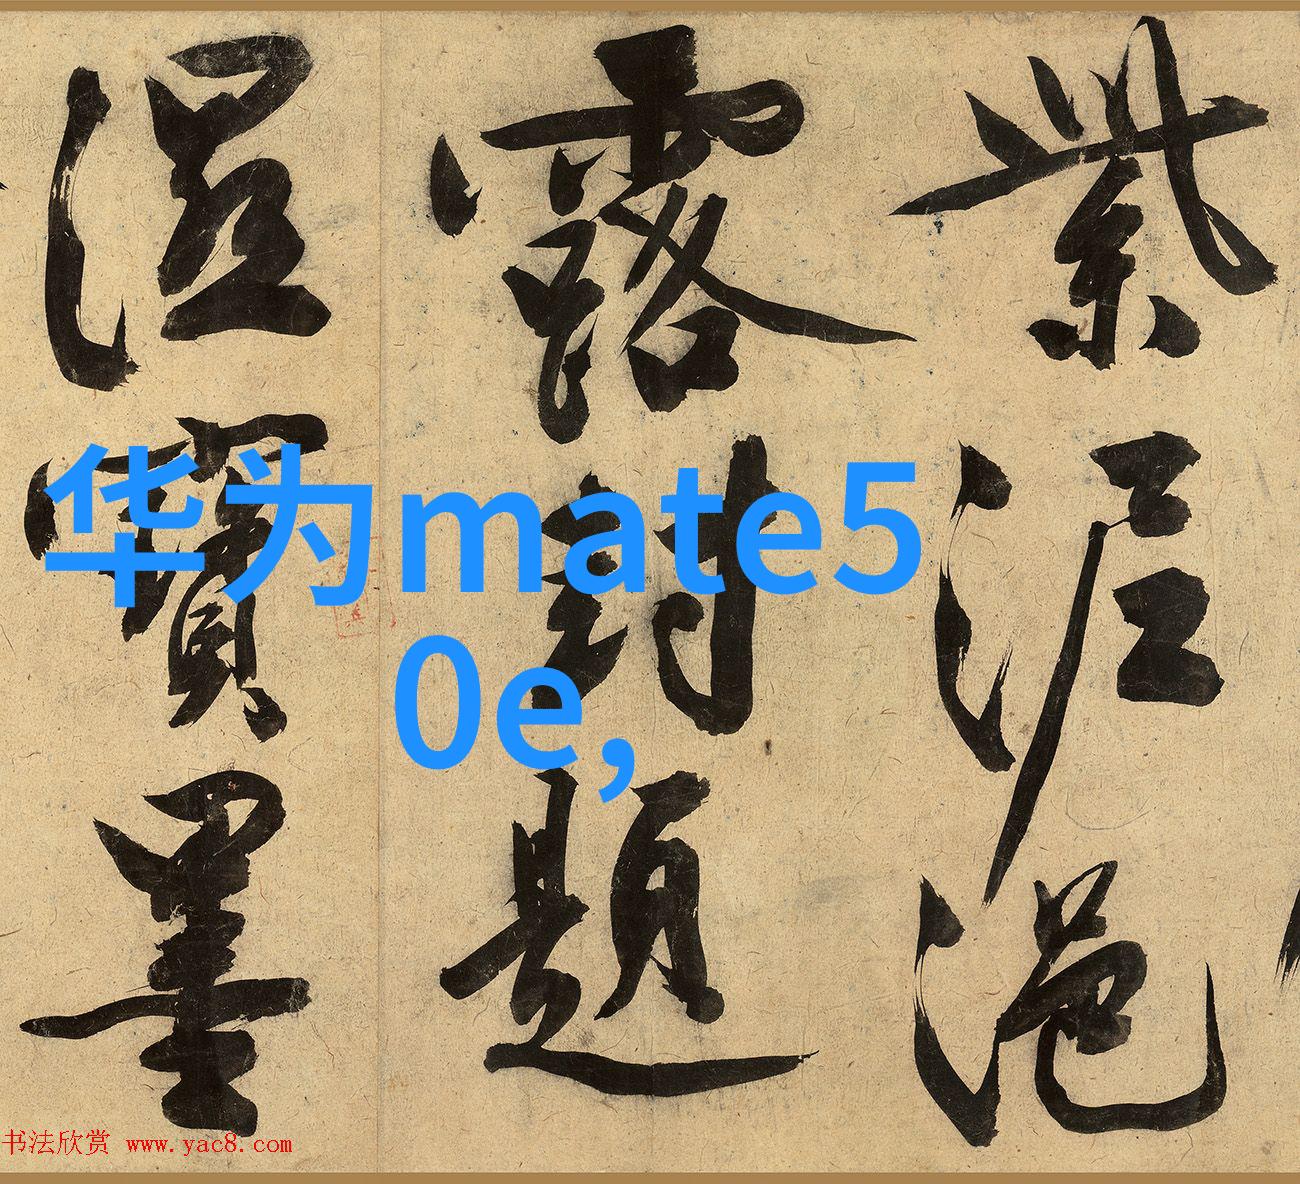 紫泥浥
露封題
濕寶墨
华为mate5
0e,
书法欣赏 www.yac8.com